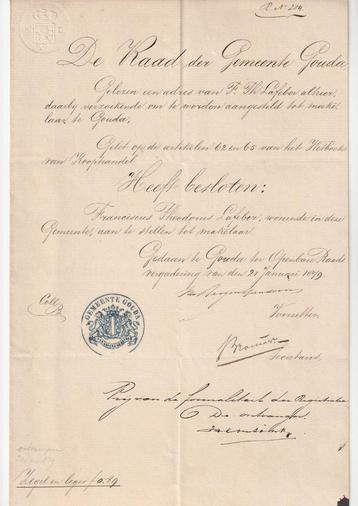 R. No 204.
De Raad der Gemeente Gouda
Gelezen een adres van F. Th. Lafeber alhier,
daarbij verzoekende om te worden aangesteld tot make-
laar te Gouda.
Gelet op de artikelen 62 en 65 van het Wetboek
van Koophandel
Heeft besloten:
Franciscus Theodorus Lafeber, wonende in deze
Gemeente, aan te stellen tot makelaar.
Gedaan te Gouda ter Openbare Raads
vergadering van den 21 Januari 1879.
Voorzitter
Coll
GEMEENTE GOUDA
Brouwer
Secretaris
Vrij van de formaliteit der Registratie
De ontvanger
Zegel en leges f 0.89